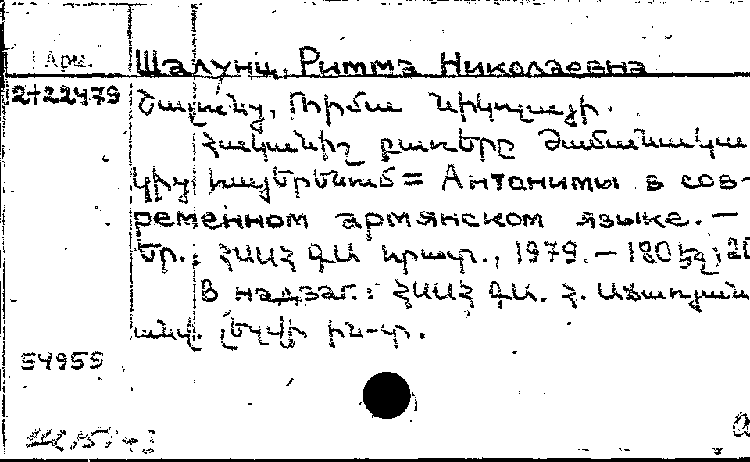 Арм.
Шалунц, Римма Николаевна
2+22479
Շալունց, Ռիմմա Նիկոլայի.
Հականիշ բառերը ժամանակա
կից հայերենում = Антонимы в сов-
ременном армянском языке. –
Եր.: ՀՍՍՀ ԳԱ հրատ., 1979. – 180 էջ; 20
В надзаг.: ՀՍՍՀ ԳԱ. Հ. Աճառյանի
անվ. լեզվի ին-տ.
54955